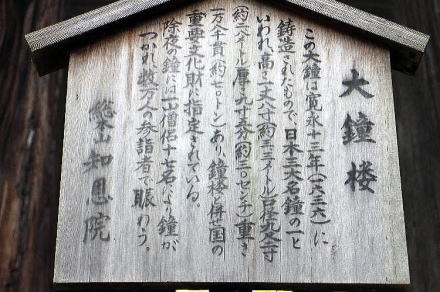 大鐘楼
この大鐘は寛永十三年(一六三六)に
鋳造されたもので、日本三大名鐘の一と
いわれ、高さ一丈八寸(約三・三メートル)口径九尺二寸
(約二・八メートル)厚さ九寸五分(約三〇センチ)重さ
一万八千貫(約七〇トン)あり、鐘楼と併せ国の
重要文化財に指定されている。
除夜の鐘には一山僧侶十七名により鐘が
つかれ数万人の参詣者で賑わう。
総本山知恩院